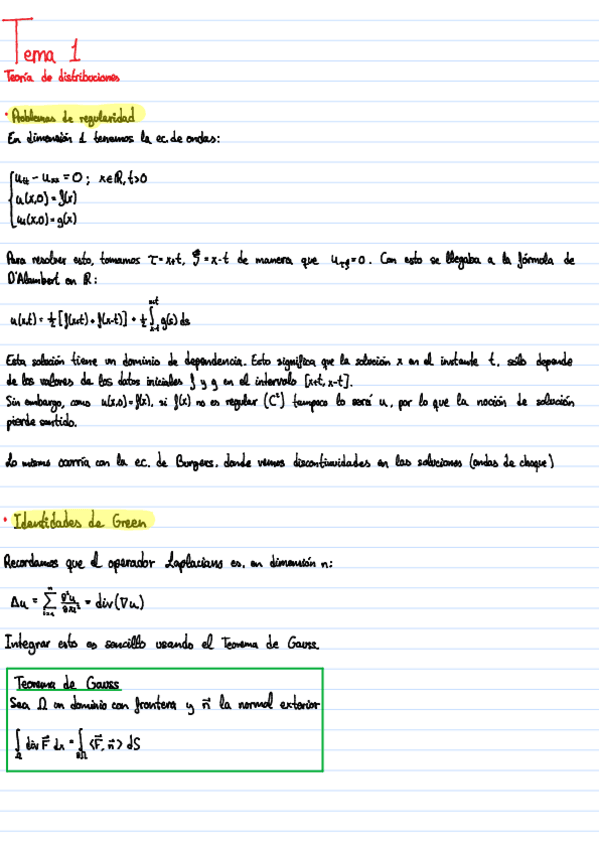 Tema 1
Teoría de distribuciones
• Problemas de regularidad
En dimensión 1 tenemos la ec. de ondas:
u_tt - u_xx = 0 ; x∈ℝ, t>0
u(x,0) = f(x)
u_t(x,0) = g(x)
Para resolver esto, tomamos τ = x+t, ξ = x-t de manera que u_τξ = 0. Con esto se llegaba a la fórmula de
D'Alambert en ℝ:
u(x,t) = 1/2 [f(x+t) + f(x-t)] + 1/2 ∫_{x-t}^{x+t} g(s) ds
Esta solución tiene un dominio de dependencia. Esto significa que la solución x en el instante t, sólo depende
de los valores de los datos iniciales f y g en el intervalo [x+t, x-t].
Sin embargo, como u(x,0) = f(x), si f(x) no es regular (C²) tampoco lo será u, por lo que la noción de solución
pierde sentido.
Lo mismo ocurría con la ec. de Burgers, donde vemos discontinuidades en las soluciones (ondas de choque)
• Identidades de Green
Recordamos que el operador Laplaciano es, en dimensión n:
Δu = ∑_{i=1}^{n} ∂²u/∂x_i² = div(∇u)
Integrar esto es sencillo usando el Teorema de Gauss.
Teorema de Gauss
Sea Ω un dominio con frontera y n⃗ la normal exterior
∫_Ω div F⃗ dx = ∫_∂Ω ⟨F⃗, n⃗⟩ dS